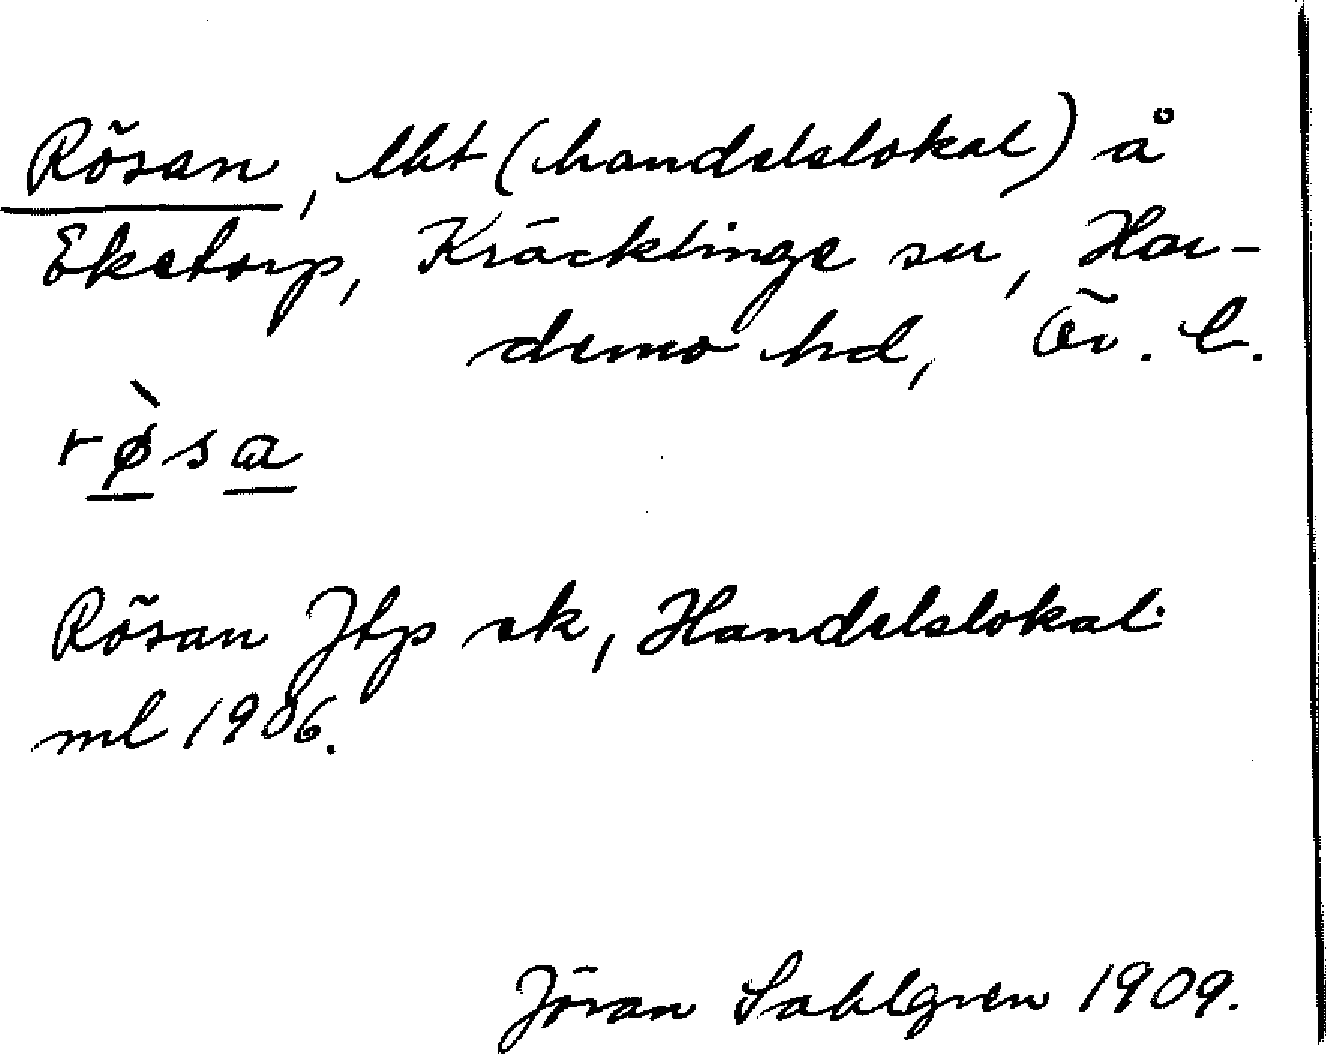 Rösan, lht (handelslokal) å
Eketorp, Kräcklinge sn, Har-
demo hd, Ör. l.
rø̀sa
Rösan Jtp ek, Handelslokal
ml 1906.
Jöran Sahlgren 1909.